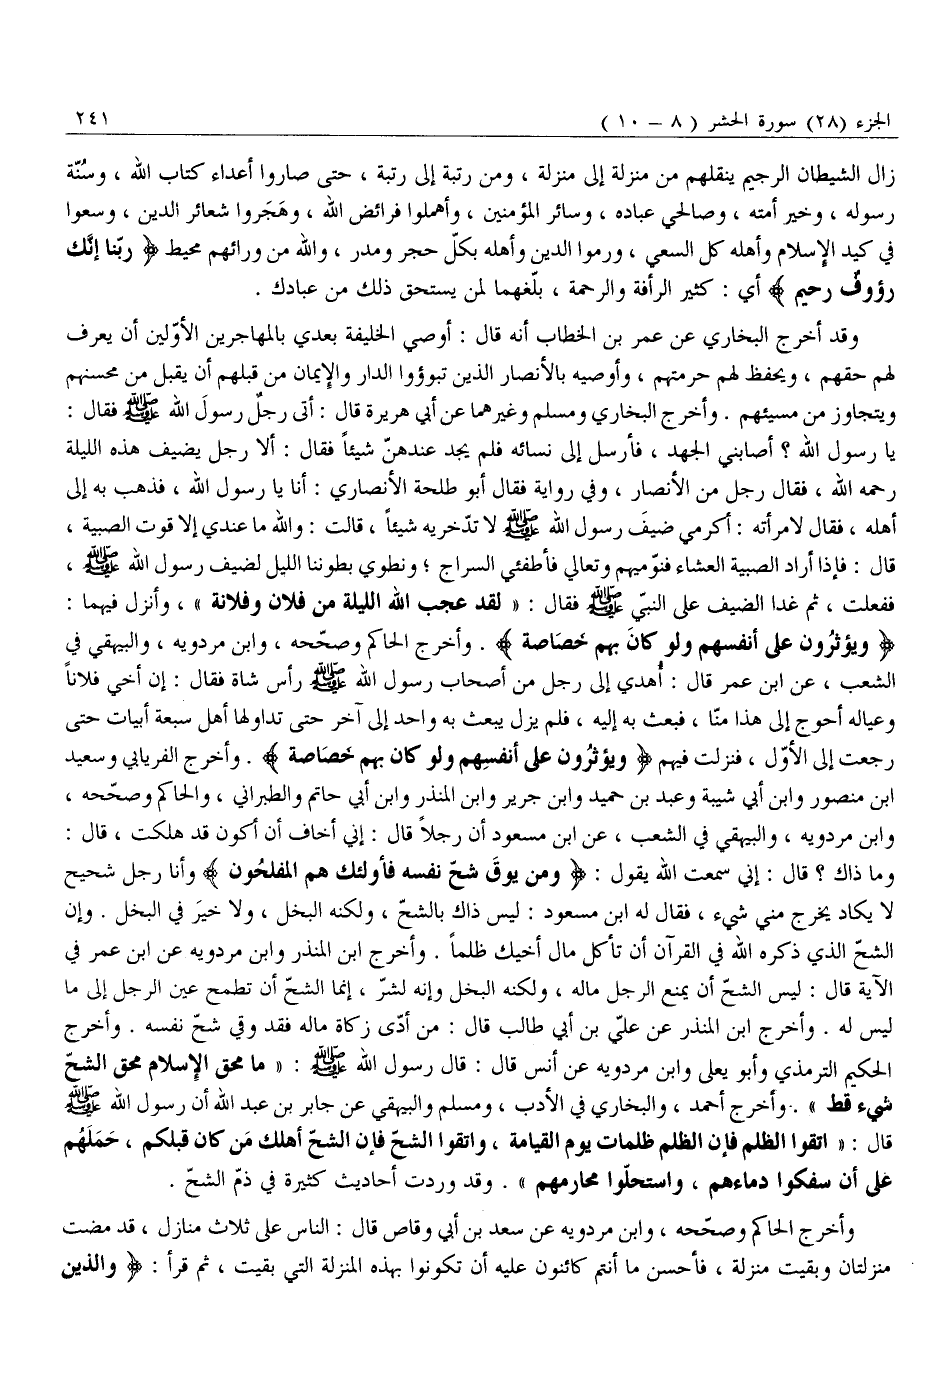 الجزء (٢٨) سورة الحشر ( ٨ – ١٠ ) ٢٤١
زال الشيطان الرجيم ينقلهم من منزلة إلى منزلة ، ومن رتبة إلى رتبة ، حتى صاروا أعداء كتاب الله ، وسُنّة
رسوله ، وخير أمته ، وصالحي عباده ، وسائر المؤمنين ، وأهملوا فرائض الله ، وهَجَروا شعائر الدين ، وسعوا
في كيد الإسلام وأهله كل السعي ، ورموا الدين وأهله بكلّ حجر ومدر ، والله من ورائهم محيط ﴿ ربّنا إنَّك
رؤوفٌ رحيم ﴾ أي : كثير الرأفة والرحمة ، بلّغهما لمن يستحق ذلك من عبادك .
وقد أخرج البخاري عن عمر بن الخطاب أنه قال : أوصي الخليفة بعدي بالمهاجرين الأوّلين أن يعرف
لهم حقهم ، ويحفظ لهم حرمتهم ، وأوصيه بالأنصار الذين تبوؤوا الدار والإيمان من قبلهم أن يقبل من محسنهم
ويتجاوز من مسيئهم . وأخرج البخاري ومسلم وغيرهما عن أبي هريرة قال : أتى رجلٌ رسولَ الله ﷺ فقال :
يا رسول الله ؟ أصابني الجهد ، فأرسل إلى نسائه فلم يجد عندهنّ شيئاً فقال : ألا رجل يضيف هذه الليلة
رحمه الله ، فقال رجل من الأنصار ، وفي رواية فقال أبو طلحة الأنصاري : أنا يا رسول الله ، فذهب به إلى
أهله ، فقال لامرأته : أكرمي ضيفَ رسول الله ﷺ لا تدّخريه شيئاً ، قالت : والله ما عندي إلا قوت الصبية ،
قال : فإذا أراد الصبية العشاء فنوّميهم وتعالي فأطفئي السراج ؛ ونطوي بطوننا الليل لضيف رسول الله ﷺ ،
ففعلت ، ثم غدا الضيف على النبيّ ﷺ فقال : « لقد عجب الله الليلة من فلان وفلانة » ، وأنزل فيهما :
﴿ ويؤثرُون على أنفسهم ولو كانَ بهم خَصَاصة ﴾ . وأخرج الحاكم وصحّحه ، وابن مردويه ، والبيهقي في
الشعب ، عن ابن عمر قال : أُهدي إلى رجل من أصحاب رسول الله ﷺ رأس شاة فقال : إن أخي فلاناً
وعياله أحوج إلى هذا منّا ، فبعث به إليه ، فلم يزل يبعث به واحد إلى آخر حتى تداولها أهل سبعة أبيات حتى
رجعت إلى الأوّل ، فنزلت فيهم ﴿ ويؤثرُون على أنفسِهم ولو كان بهم خَصَاصة ﴾ . وأخرج الفريابي وسعيد
ابن منصور وابن أبي شيبة وعبد بن حميد وابن جرير وابن المنذر وابن أبي حاتم والطبراني ، والحاكم وصحّحه ،
وابن مردويه ، والبيهقي في الشعب ، عن ابن مسعود أن رجلاً قال : إني أخاف أن أكون قد هلكت ، قال :
وما ذاك ؟ قال : إني سمعت الله يقول : ﴿ ومن يوقَ شحّ نفسه فأولئك هم المفلحُون ﴾ وأنا رجل شحيح
لا يكاد يخرج مني شيء ، فقال له ابن مسعود : ليس ذاك بالشحّ ، ولكنه البخل ، ولا خيرَ في البخل . وإن
الشحّ الذي ذكره الله في القرآن أن تأكل مال أخيك ظلماً . وأخرج ابن المنذر وابن مردويه عن ابن عمر في
الآية قال : ليس الشحّ أن يمنع الرجل ماله ، ولكنه البخل وإنه لشرّ ، إنما الشحّ أن تطمح عين الرجل إلى ما
ليس له . وأخرج ابن المنذر عن عليّ بن أبي طالب قال : من أدّى زكاة ماله فقد وقي شحّ نفسه . وأخرج
الحكيم الترمذي وأبو يعلى وابن مردويه عن أنس قال : قال رسول الله ﷺ : « ما محق الإسلام محق الشحّ
شيء قط » . وأخرج أحمد ، والبخاري في الأدب ، ومسلم والبيهقي عن جابر بن عبد الله أن رسول الله ﷺ
قال : « اتقوا الظلم فإن الظلم ظلمات يوم القيامة ، واتقوا الشحّ فإن الشحّ أهلك مَن كان قبلكم ، حَمَلَهُم
على أن سفكوا دماءهم ، واستحلّوا محارمهم » . وقد وردت أحاديث كثيرة في ذمّ الشحّ .
وأخرج الحاكم وصحّحه ، وابن مردويه عن سعد بن أبي وقاص قال : الناس على ثلاث منازل ، قد مضت
منزلتان وبقيت منزلة ، فأحسن ما أنتم كائنون عليه أن تكونوا بهذه المنزلة التي بقيت ، ثم قرأ : ﴿ والذين